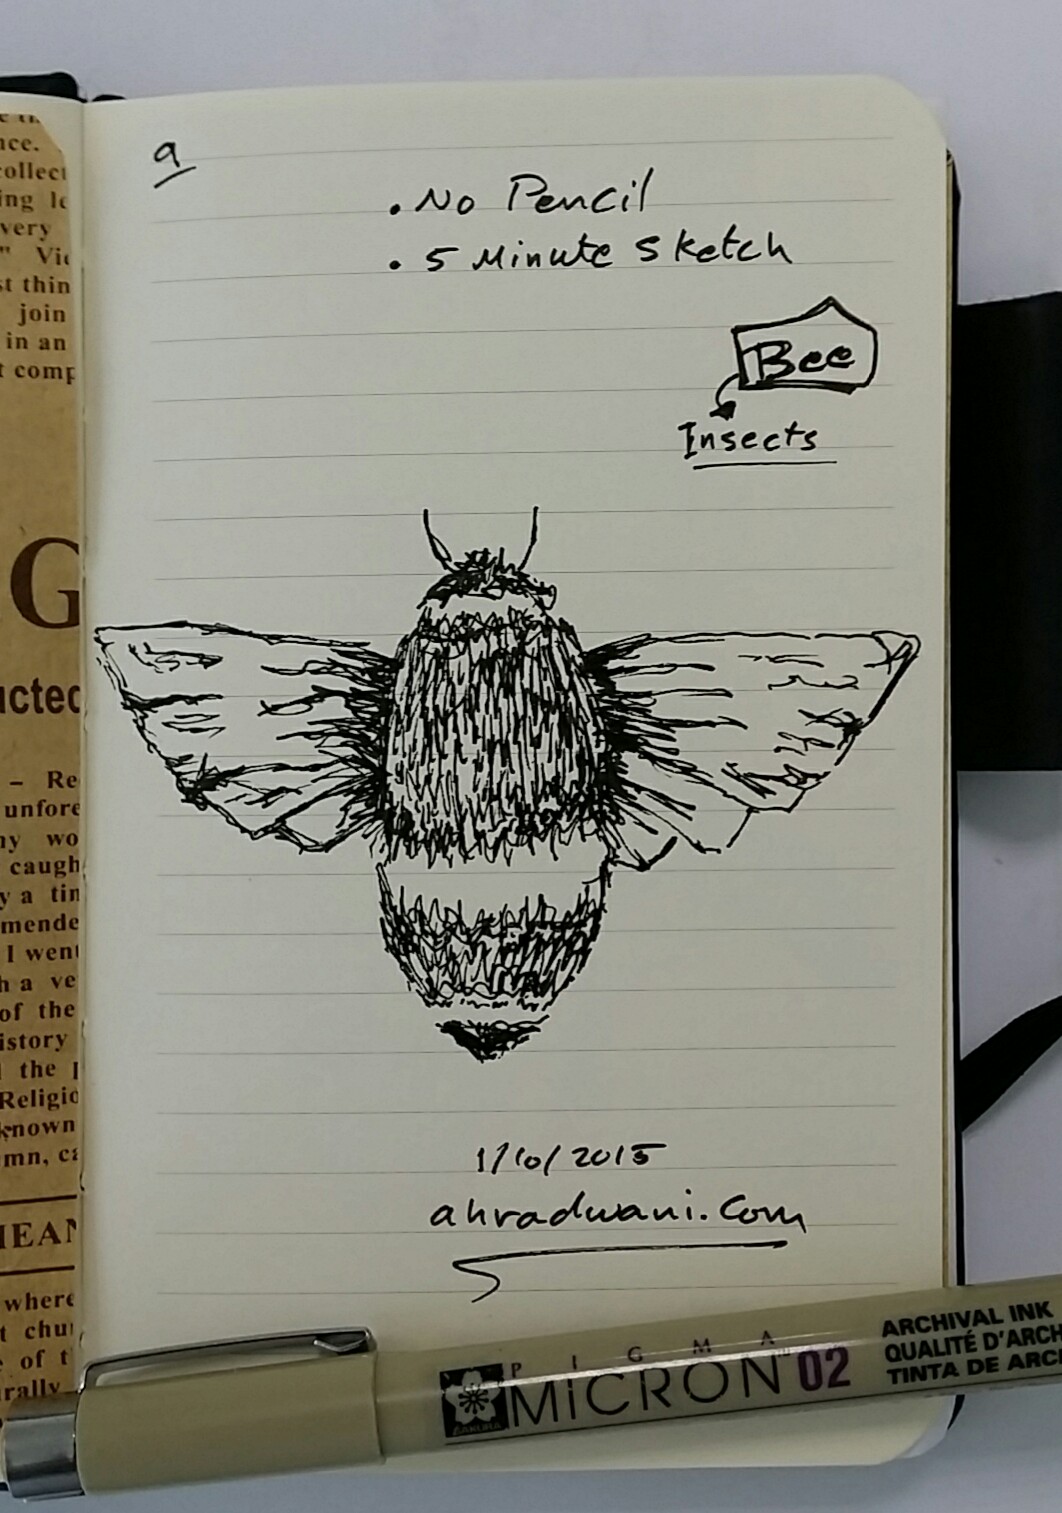 ce
nce.
collect
ing le
very
" Vic
st thin
join
in an
t comp
G
ucted
– Re
unfore
ny wo
caugh
y a tin
mende
I went
h a ve
of the
istory
the
Religio
known
mn, ca
MEAN
where
t chur
e of t
rally
9
. No Pencil
. 5 Minute Sketch
Bee
Insects
1/10/2015
ahradwani.com
PIGMA
MICRON™ 02
SAKURA
ARCHIVAL INK
QUALITÉ D'ARCH
TINTA DE ARCH